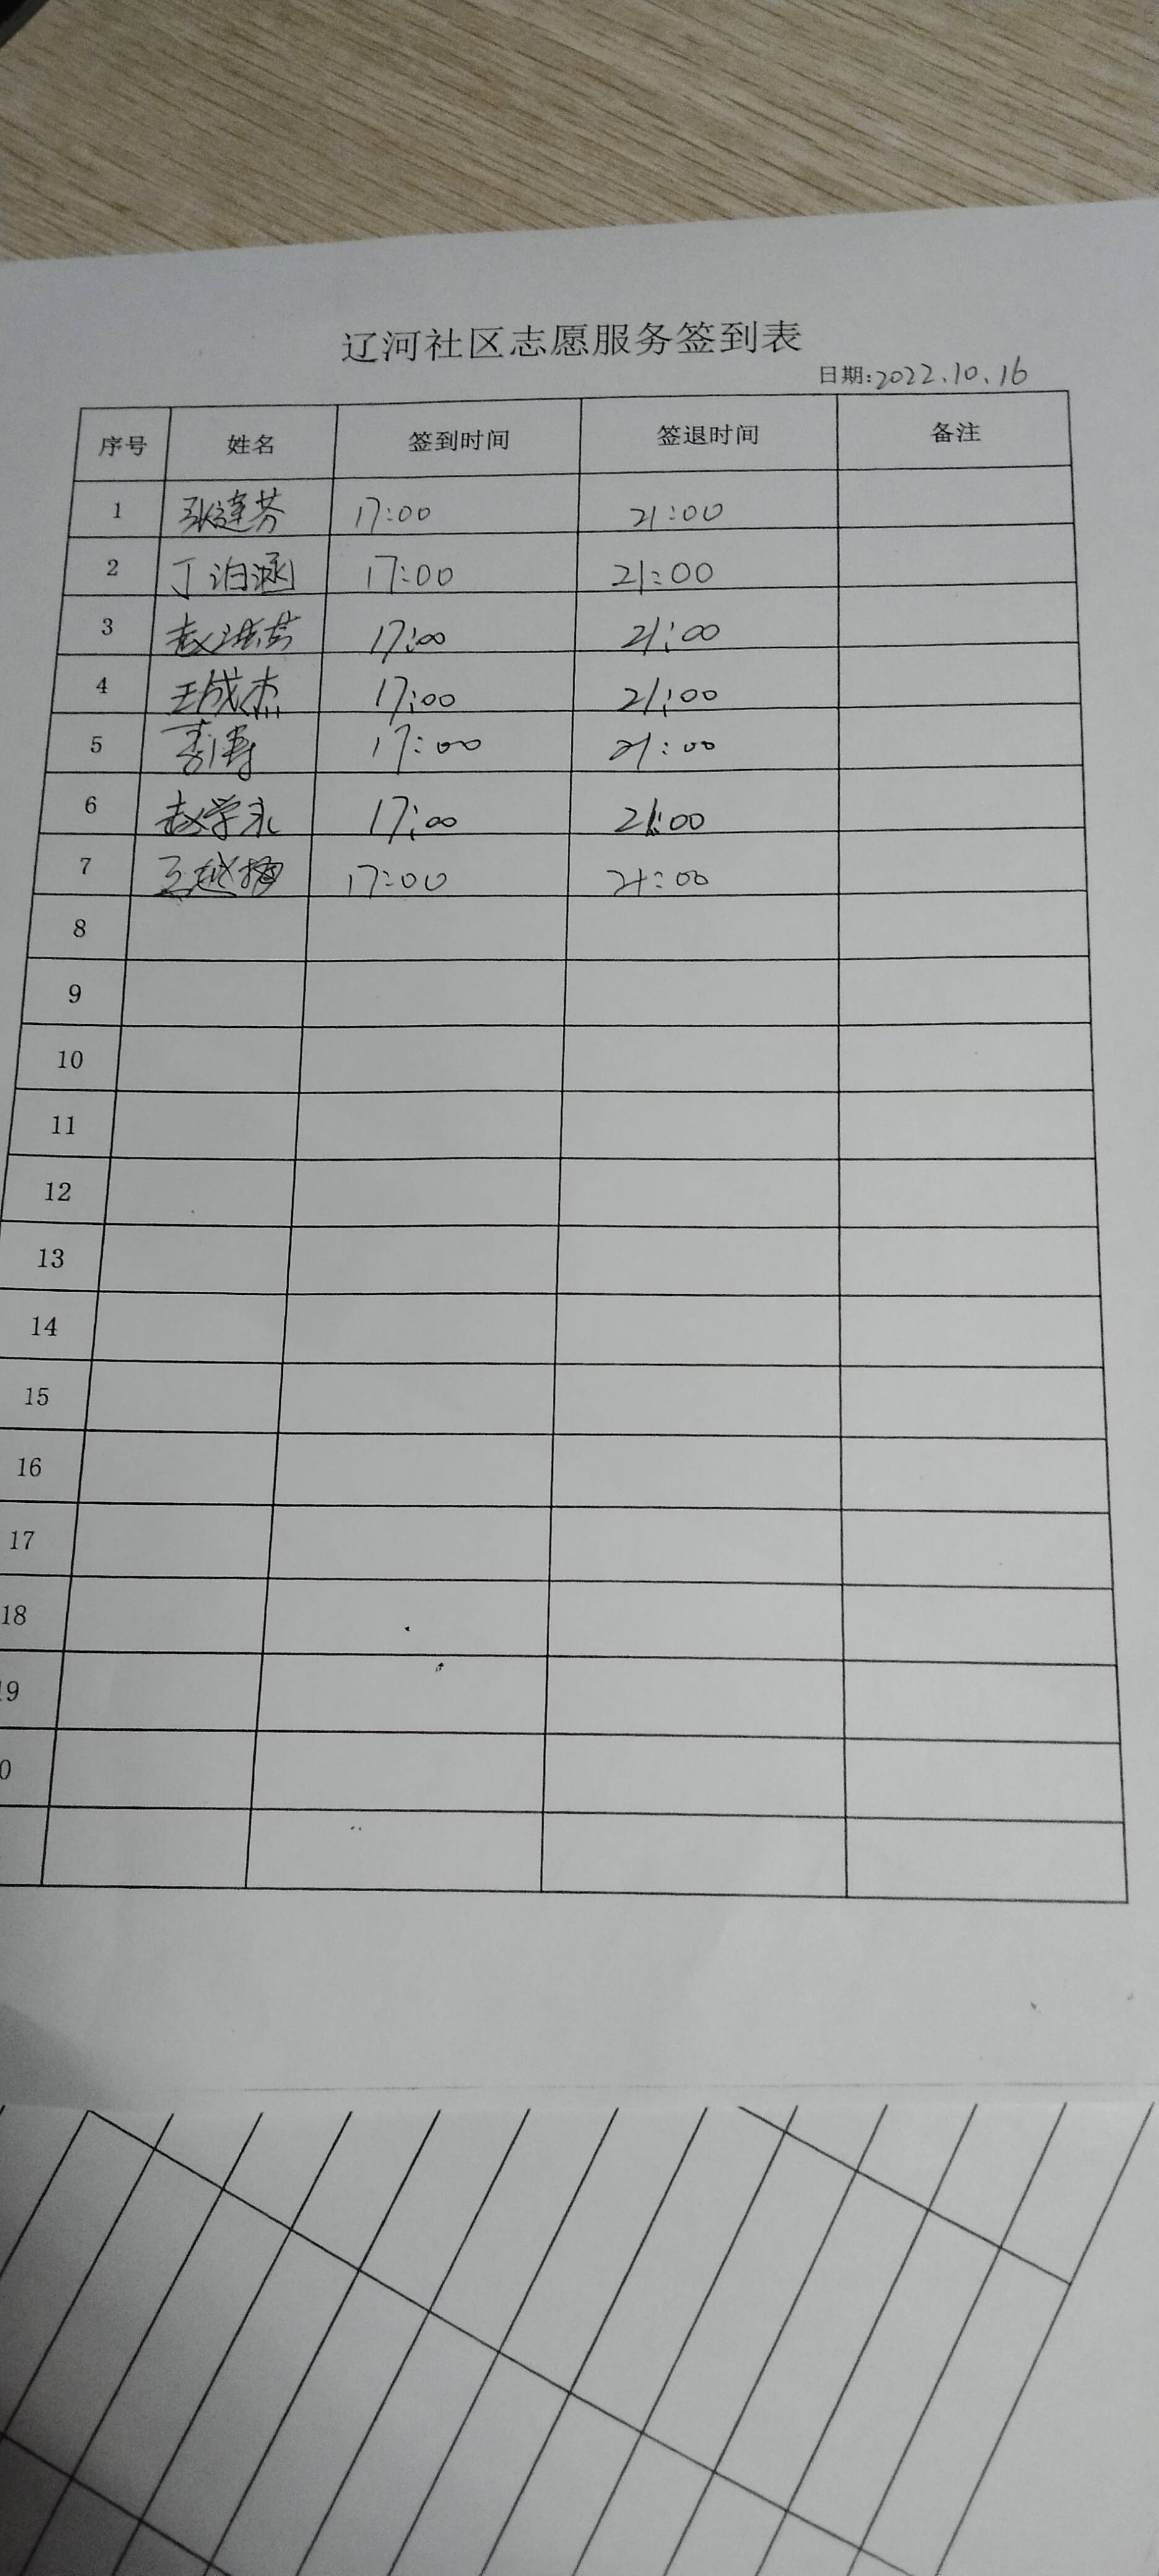 辽河社区志愿服务签到表
日期:2022.10.16
序号 姓名 签到时间 签退时间 备注
1 张莲芳 17:00 21:00
2 丁泊涵 17:00 21:00
3 17:00 21:00
4 王成杰 17:00 21:00
5 李涛 17:00 21:00
6 赵学永 17:00 21:00
7 17:00 21:00
8
9
10
11
12
13
14
15
16
17
18
19
0